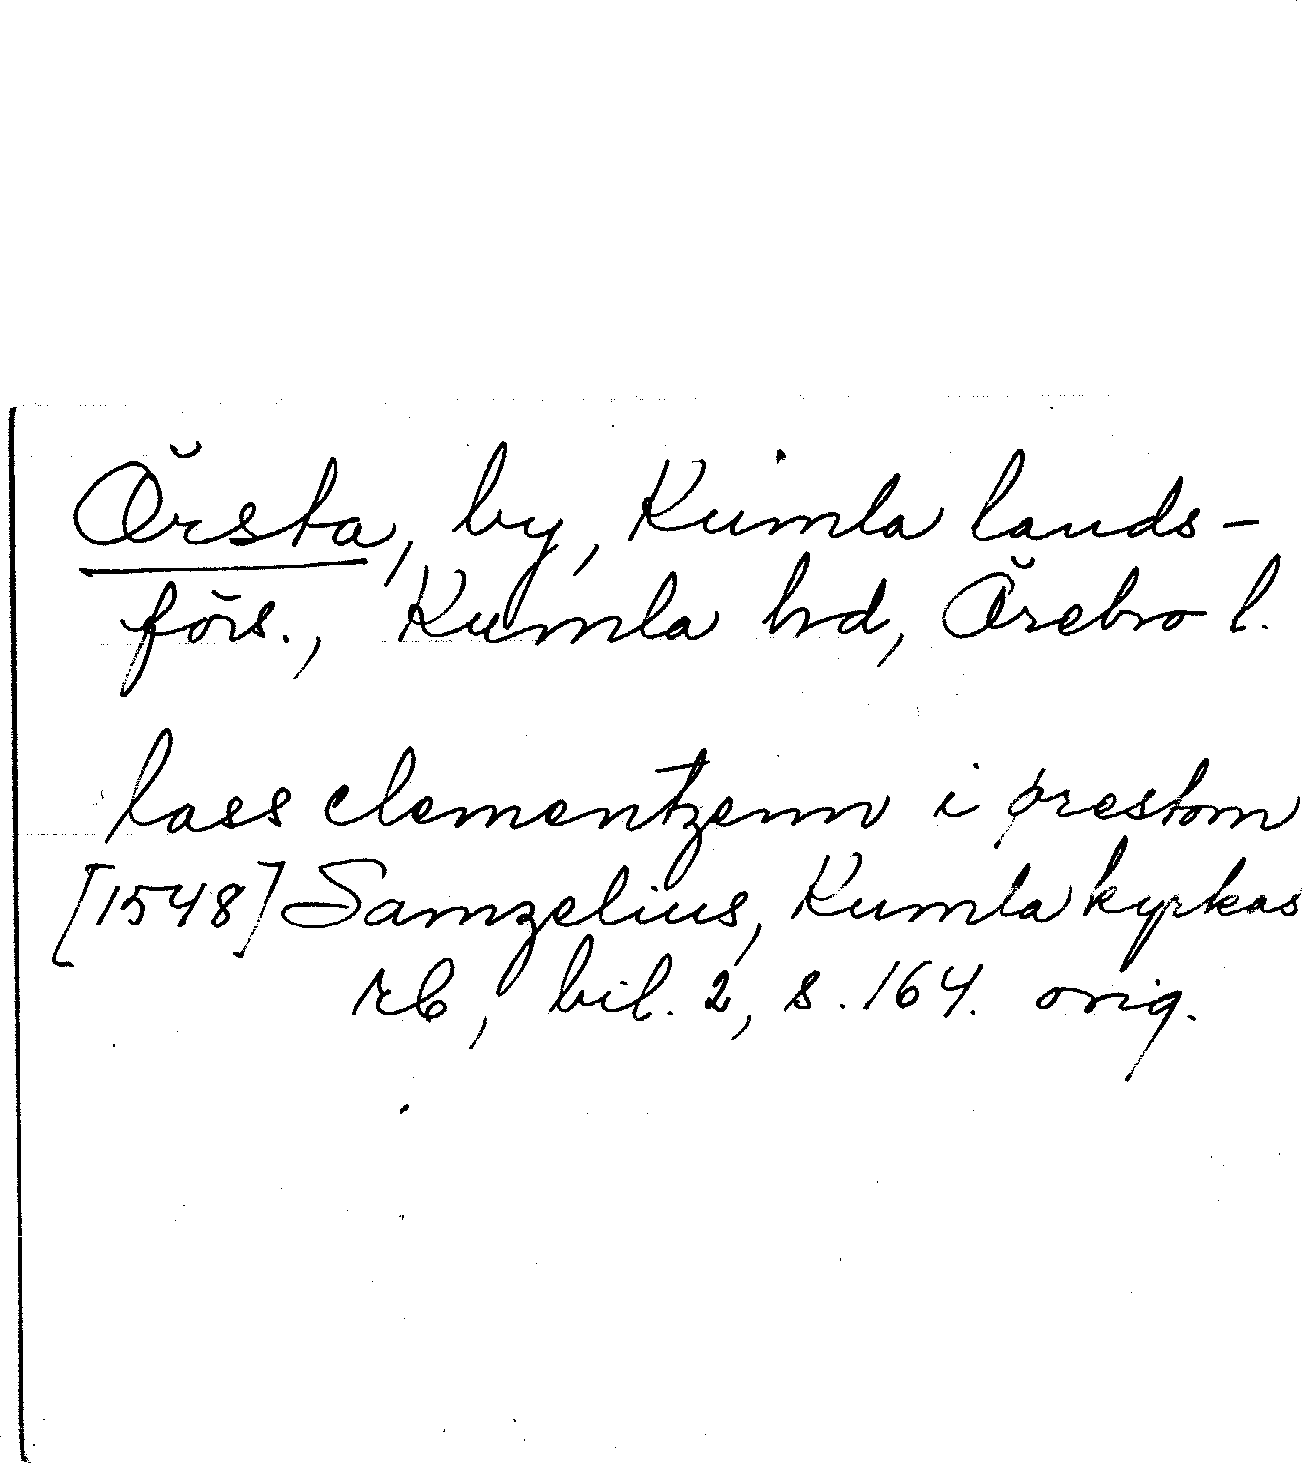 Örsta, by, Kumla lands-
förs., Kumla hd, Örebro l.
lass clementzenn i prestom
[1548] Samzelius, Kumla kyrkas
rb, bil. 2, s. 164. orig.